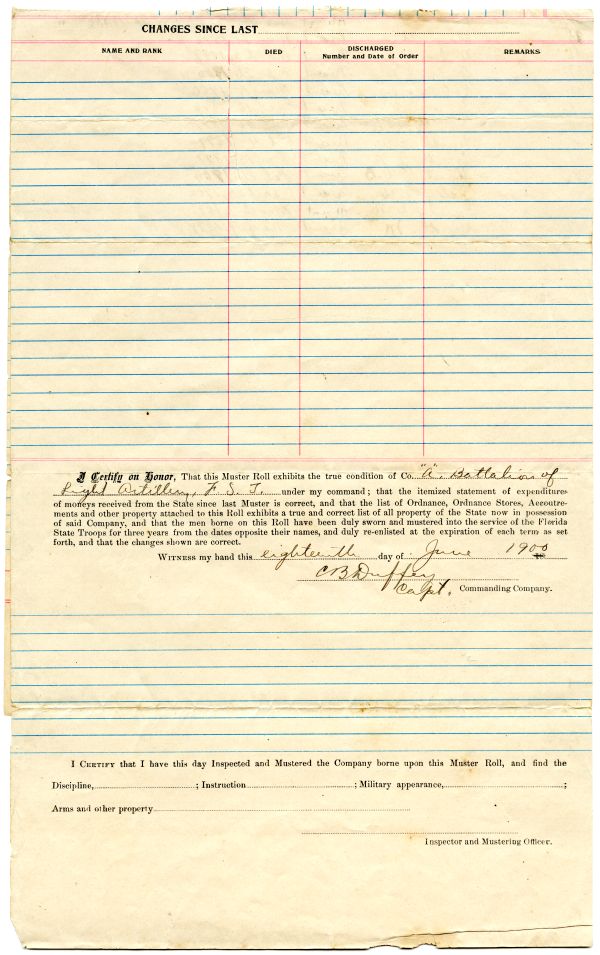 CHANGES SINCE LAST
NAME AND RANK DIED DISCHARGED Number and Date of Order REMARKS
I Certify on Honor, That this Muster Roll exhibits the true condition of Co. "A". Battalion of
Light Artillery, F. S. T. under my command; that the itemized statement of expenditures
of moneys received from the State since last Muster is correct, and that the list of Ordnance, Ordnance Stores, Accoutre-
ments and other property attached to this Roll exhibits a true and correct list of all property of the State now in possession
of said Company, and that the men borne on this Roll have been duly sworn and mustered into the service of the Florida
State Troops for three years from the dates opposite their names, and duly re-enlisted at the expiration of each term as set
forth, and that the changes shown are correct.
WITNESS my hand this eighteenth day of June 1900
C B Duffey
Capt. Commanding Company.
I CERTIFY that I have this day Inspected and Mustered the Company borne upon this Muster Roll, and find the
Discipline, ; Instruction ; Military appearance, ;
Arms and other property
Inspector and Mustering Officer.